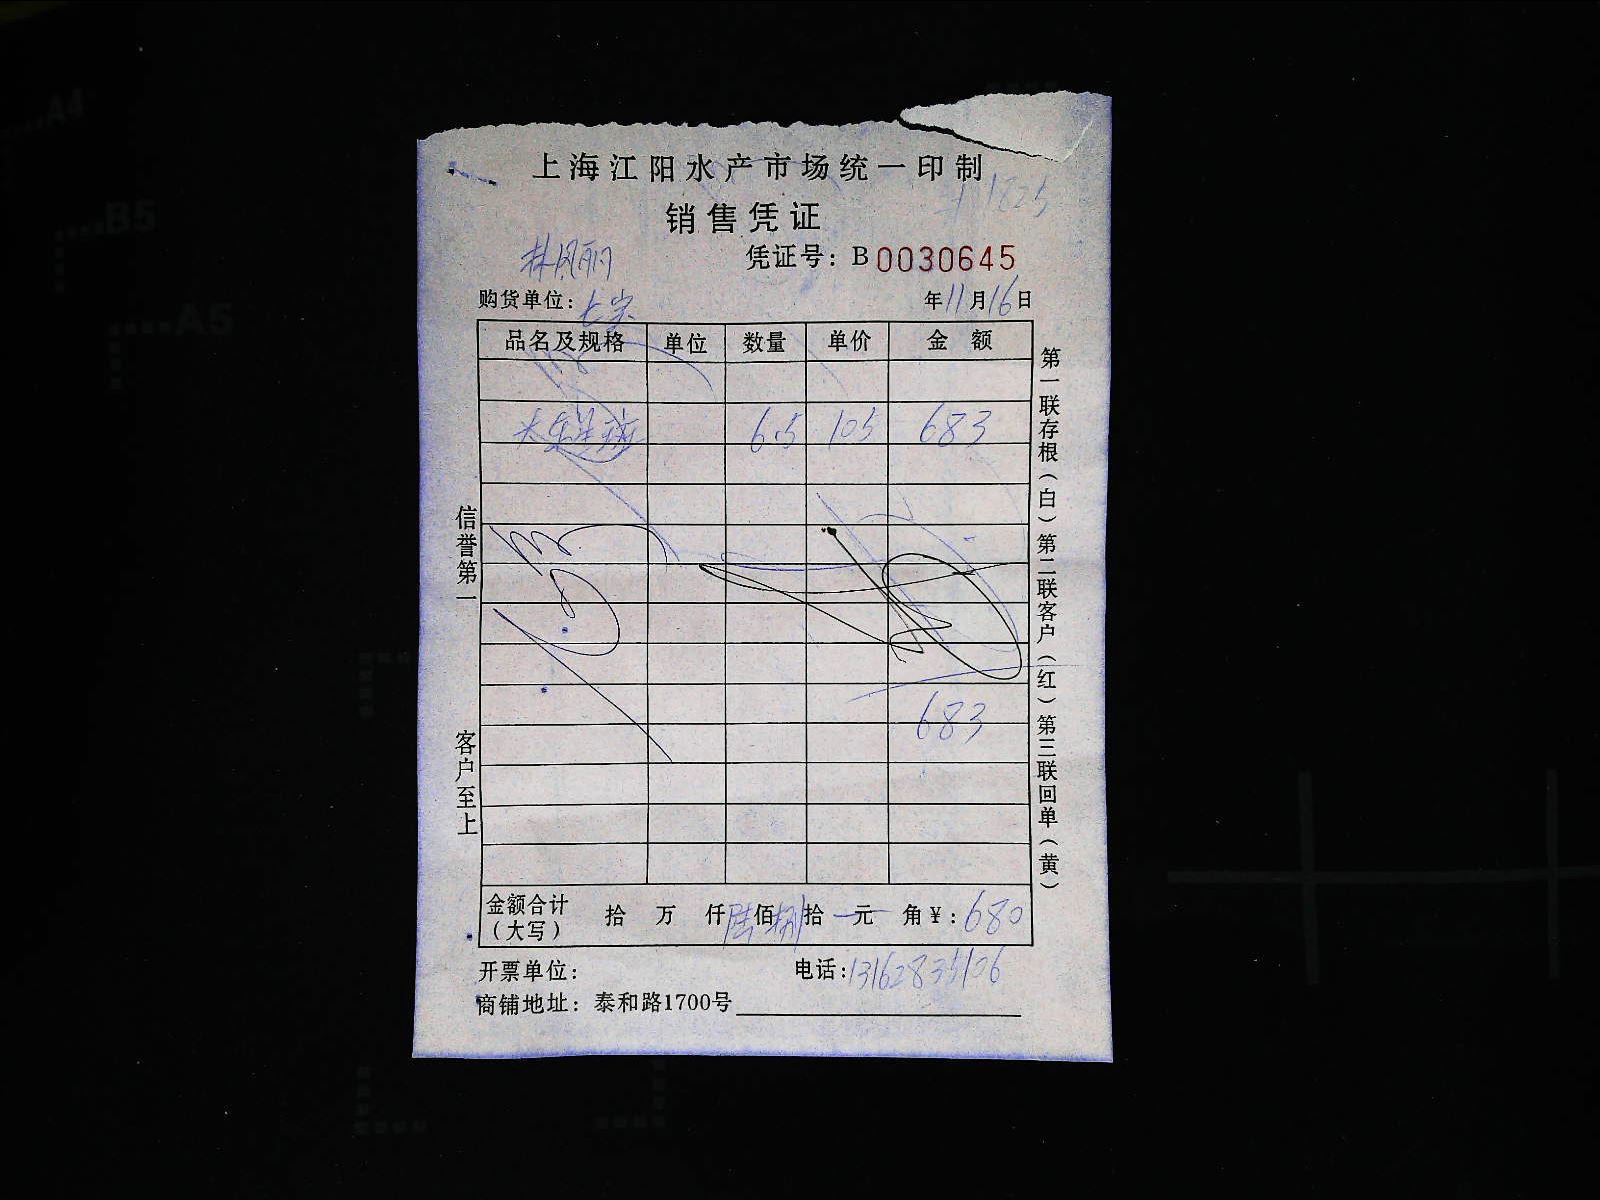 上海江阳水产市场统一印制
销售凭证
林凤丽 凭证号：B 0030645
购货单位：七宝 年11月16日
品名及规格 单位 数量 单价 金额
大连 6.5 105 683
683
金额合计（大写） 拾 万 仟陆佰捌拾 元 角¥：680
开票单位： 电话：
商铺地址：泰和路1700号
信誉第一 客户至上
第一联存根（白）第二联客户（红）第三联回单（黄）
A4
B5
A5